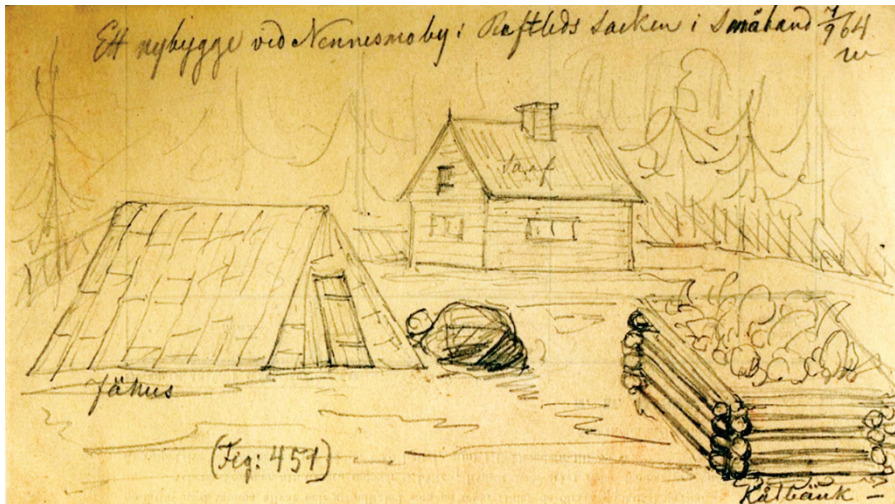 Ett nybygge vid Nennesmo by i Reftleds Socken i Småland 7/9 64
Torf
Fähus
(Fig: 451)
Kålbänk